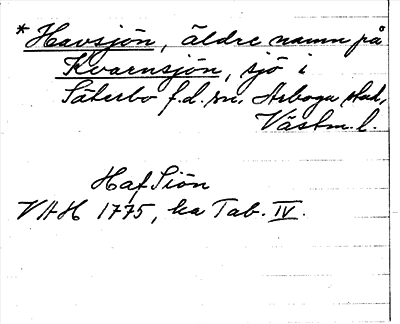 *Havsjön, äldre namn på
Kvarnsjön, sjö i
Säterbo f.d. sn, Arboga stad,
Västm. l.
Haf Siön
VAH 1775, ka Tab. IV.